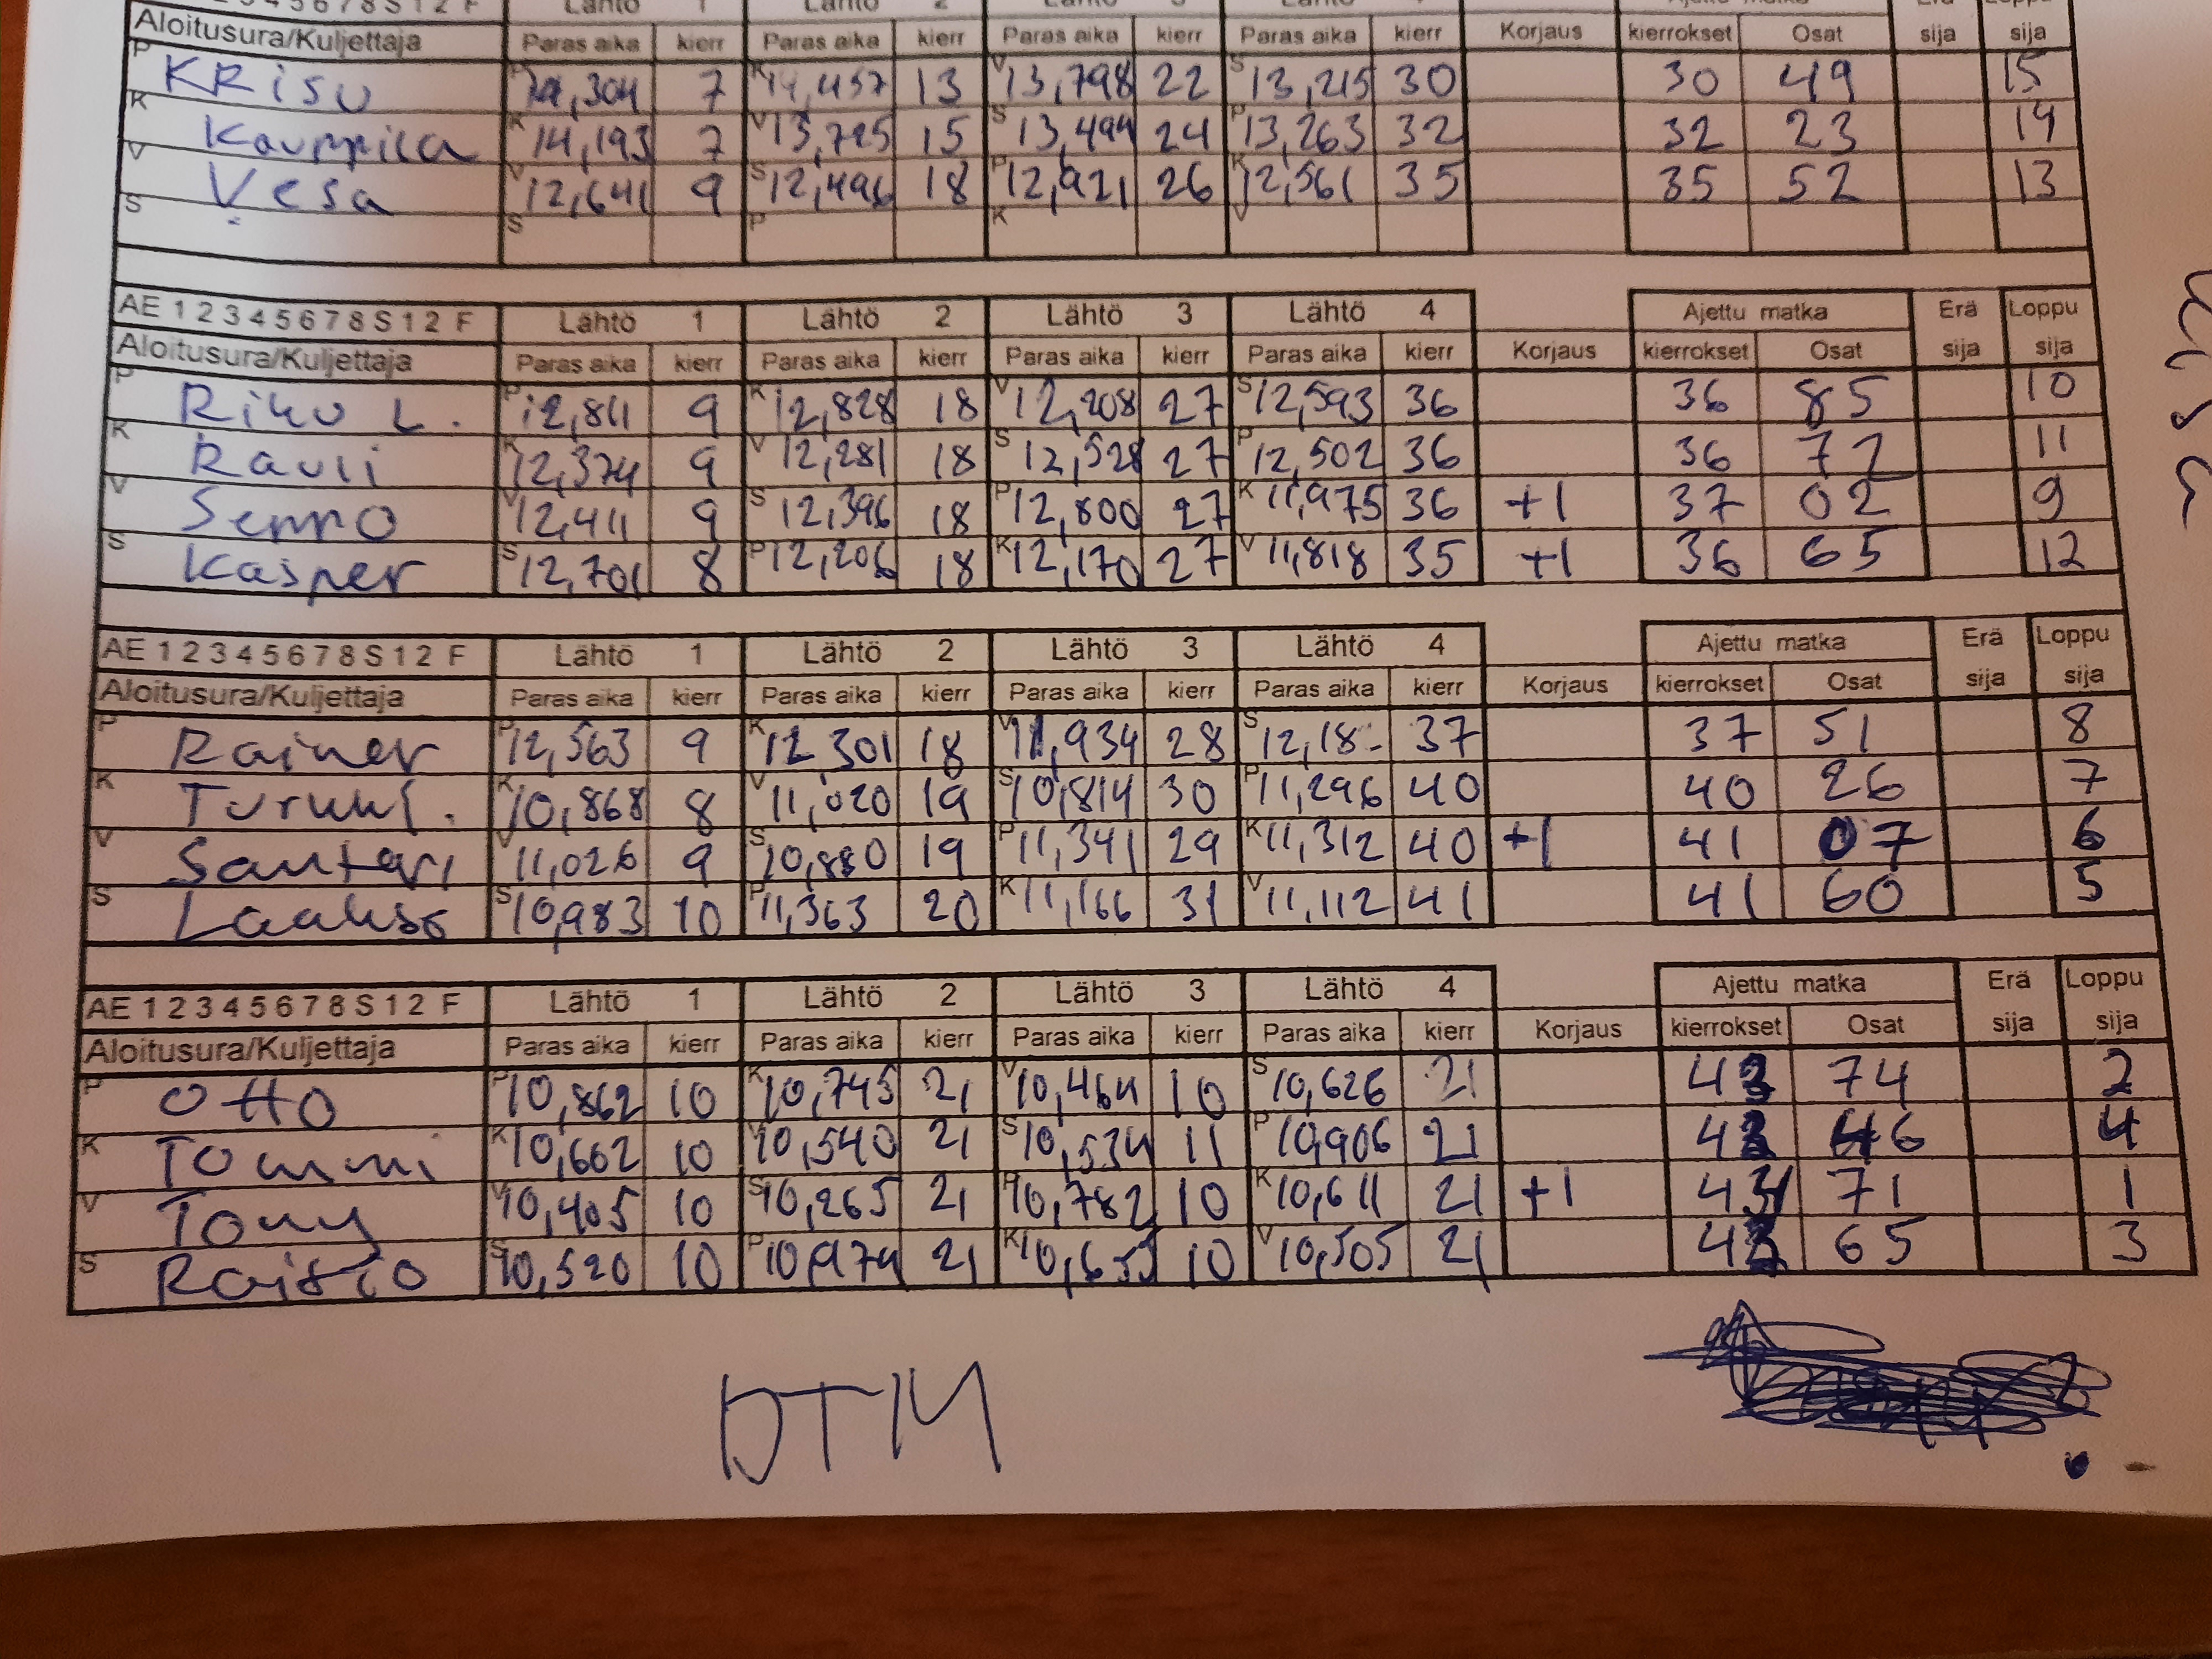 Aloitusura/Kuljettaja Paras aika kierr Paras aika kierr Paras aika kierr Paras aika kierr Korjaus kierrokset Osat sija sija
P KRisu 14,304 7 K 14,457 13 V 13,798 22 S 13,215 30 30 49 15
K Kauppila K 14,193 7 V 13,725 15 S 13,494 24 P 13,263 32 32 23 14
V Vesa V 12,641 9 S 12,496 18 P 12,921 26 K 12,561 35 35 52 13
S S P K V
AE 1 2 3 4 5 6 7 8 S 1 2 F Lähtö 1 Lähtö 2 Lähtö 3 Lähtö 4 Ajettu matka Erä Loppu
Aloitusura/Kuljettaja Paras aika kierr Paras aika kierr Paras aika kierr Paras aika kierr Korjaus kierrokset Osat sija sija
P Riku L. P 12,811 9 K 12,828 18 V 12,208 27 S 12,593 36 36 85 10
K Rauli K 12,374 9 V 12,281 18 S 12,528 27 P 12,502 36 36 72 11
V Seppo V 12,411 9 S 12,396 18 P 12,800 27 K 11,975 36 +1 37 02 9
S Kasper S 12,701 8 P 12,206 18 K 12,170 27 V 11,818 35 +1 36 65 12
AE 1 2 3 4 5 6 7 8 S 1 2 F Lähtö 1 Lähtö 2 Lähtö 3 Lähtö 4 Ajettu matka Erä Loppu
Aloitusura/Kuljettaja Paras aika kierr Paras aika kierr Paras aika kierr Paras aika kierr Korjaus kierrokset Osat sija sija
P Rainer P 12,563 9 K 12,301 18 V 11,934 28 S 12,18- 37 37 51 8
K Turukl. K 10,868 8 V 11,020 19 S 10,814 30 P 11,296 40 40 26 7
V Santeri V 11,026 9 S 10,880 19 P 11,341 29 K 11,312 40 +1 41 07 6
S Laakso S 10,983 10 P 11,363 20 K 11,166 31 V 11,112 41 41 60 5
AE 1 2 3 4 5 6 7 8 S 1 2 F Lähtö 1 Lähtö 2 Lähtö 3 Lähtö 4 Ajettu matka Erä Loppu
Aloitusura/Kuljettaja Paras aika kierr Paras aika kierr Paras aika kierr Paras aika kierr Korjaus kierrokset Osat sija sija
P Otto P 10,862 10 K 10,745 21 V 10,464 10 S 10,626 21 74 2
K Tommi K 10,662 10 V 10,540 21 S 10,534 11 P 10,906 21 46 4
V Tony V 10,405 10 S 10,265 21 P 10,782 10 K 10,611 21 +1 71 1
S Raitio S 10,520 10 P 10,974 21 K 10,655 10 V 10,505 21 65 3
DTM